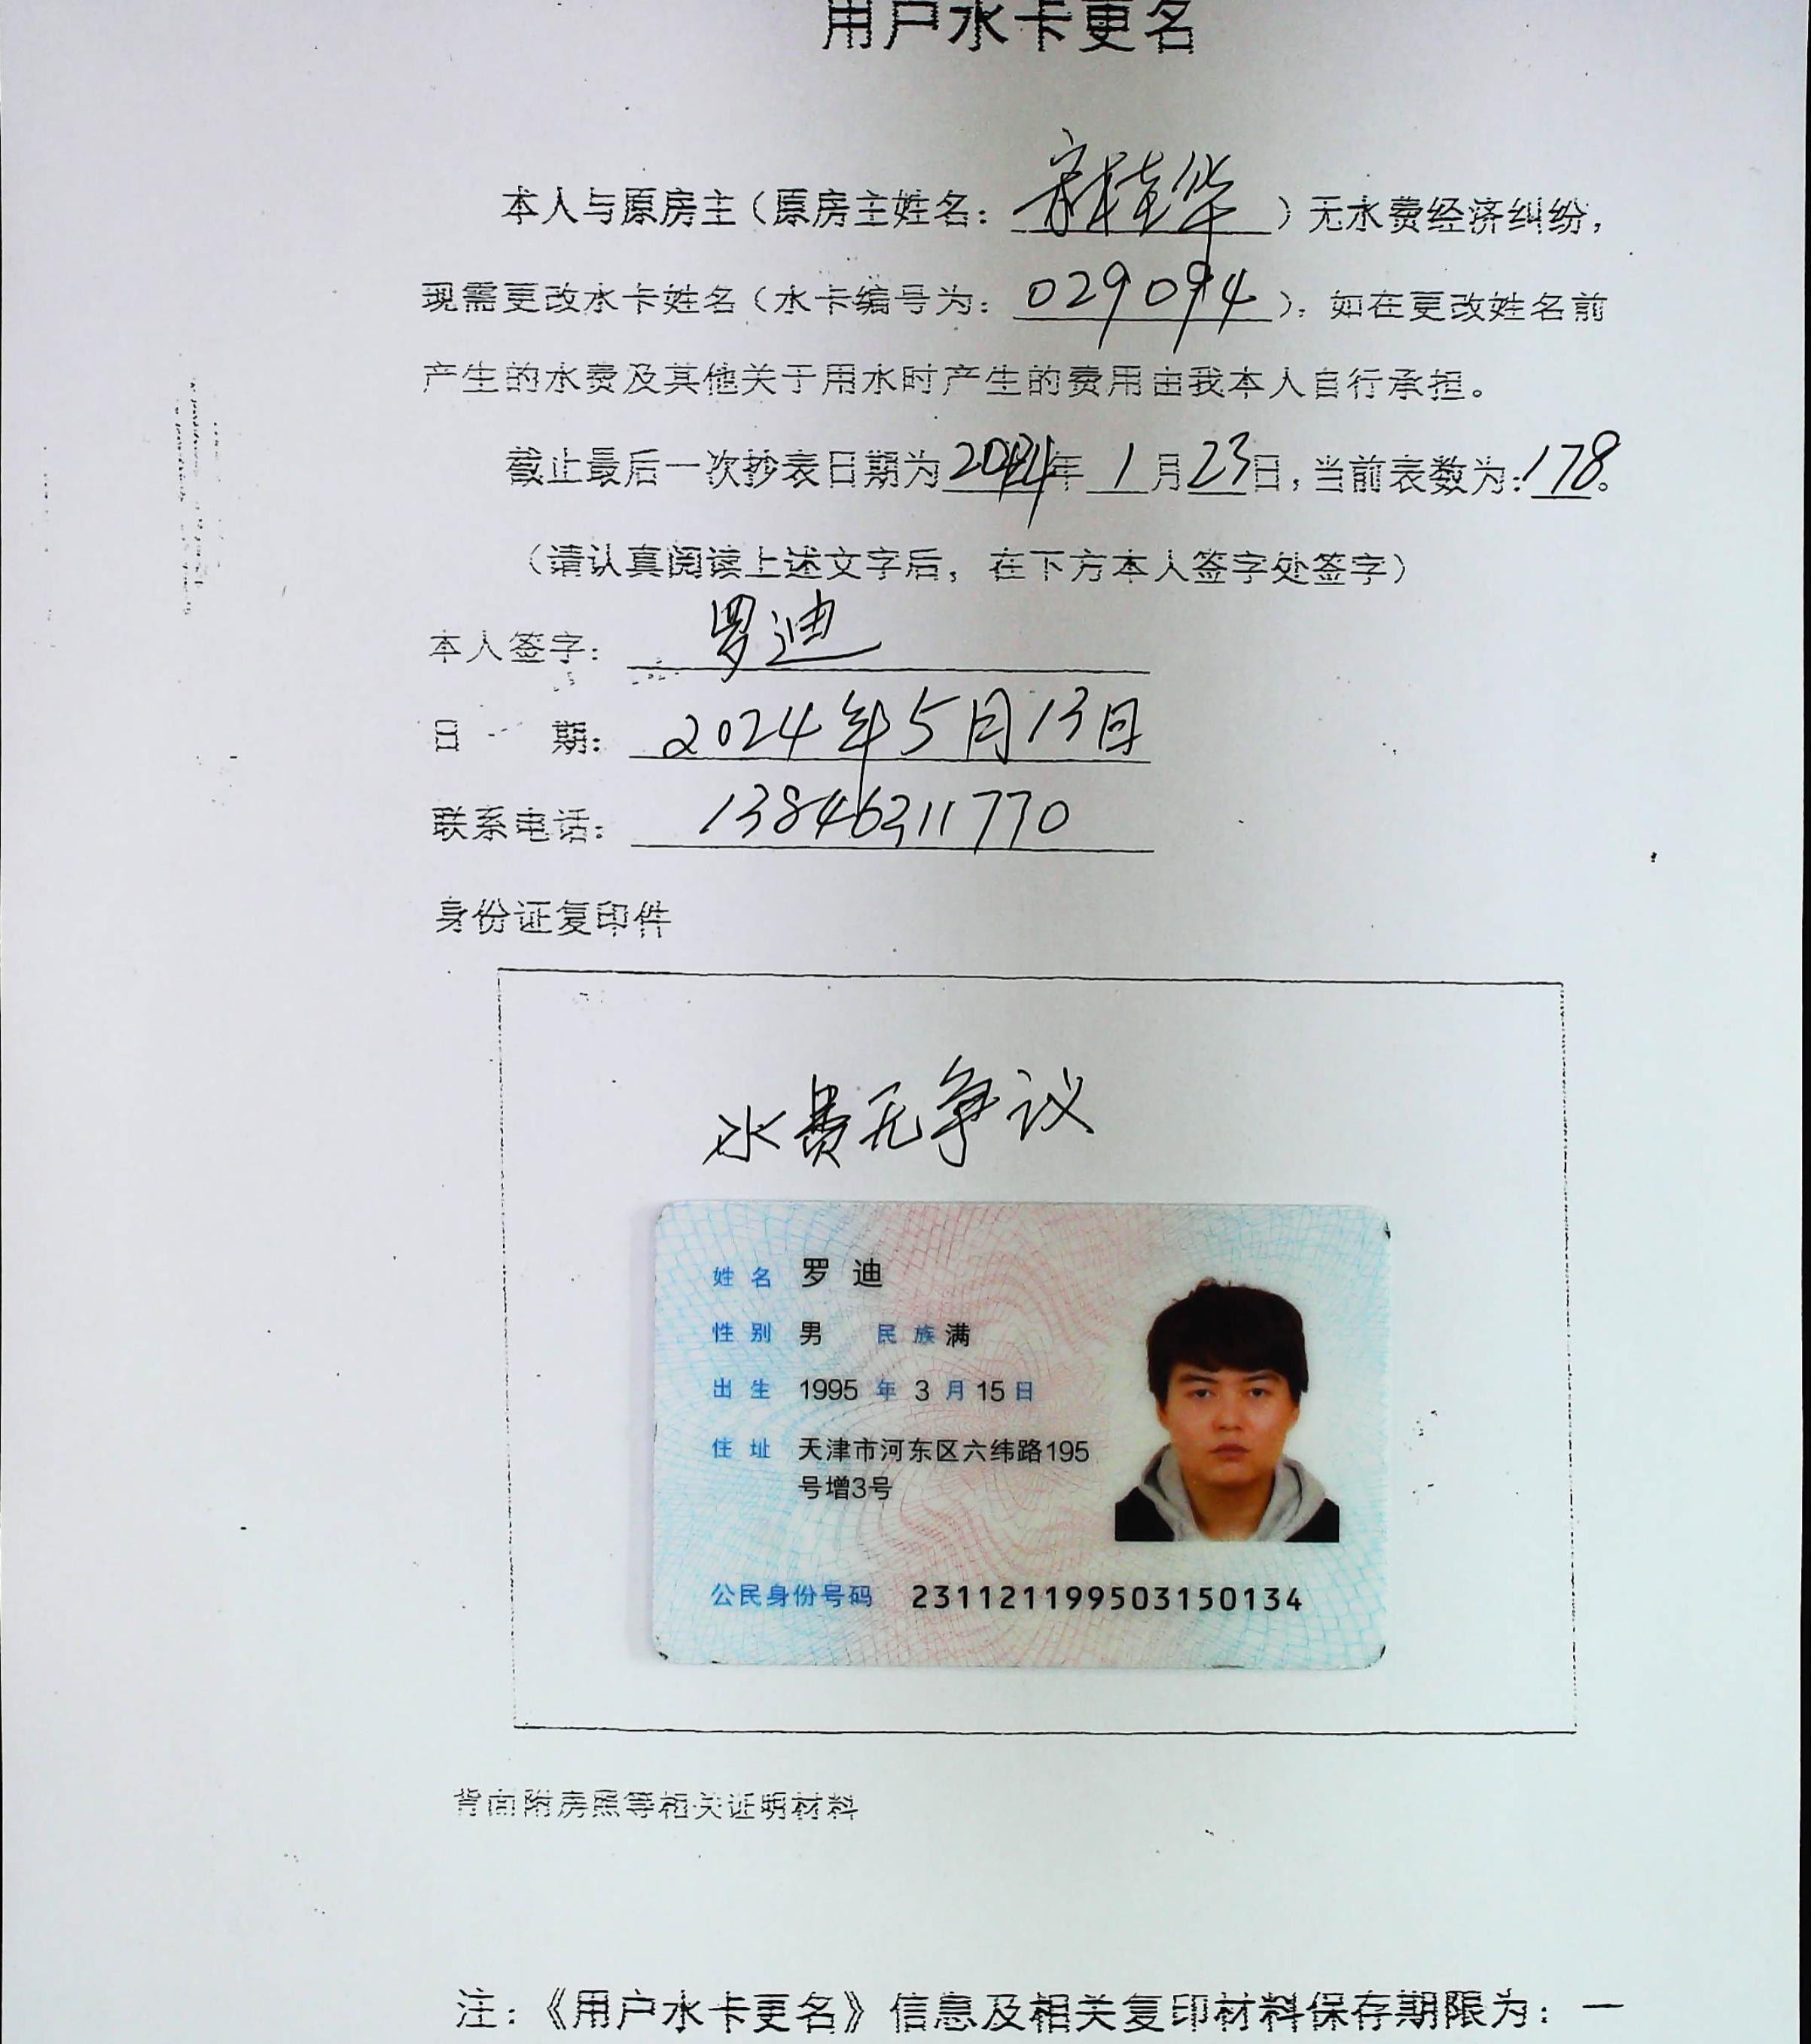 用户水卡更名
本人与原房主(原房主姓名:桂华)无水费经济纠纷,
现需更改水卡姓名(水卡编号为:029094)。如在更改姓名前
产生的水费及其他关于用水时产生的费用由我本人自行承担。
截止最后一次抄表日期为2024年1月23日,当前表数为:178。
(请认真阅读上述文字后,在下方本人签字处签字)
本人签字:罗迪
日 期:2024年5月13日
联系电话:13846311770
身份证复印件
水费无争议
姓名 罗迪
性别 男 民族 满
出生 1995年3月15日
住址 天津市河东区六纬路195
号增3号
公民身份号码 231121199503150134
背面附房照等相关证明材料
注:《用户水卡更名》信息及相关复印材料保存期限为:一